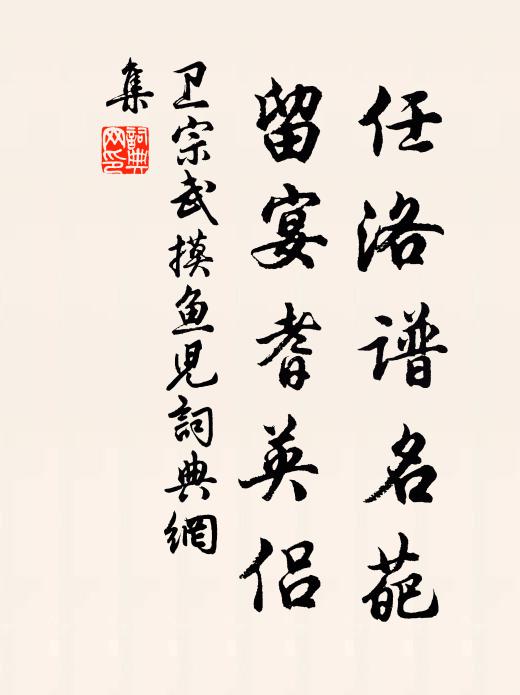 任洛谱名葩
留宴耆英侣
卫宗武摸鱼児詞典網
集
詞典網印